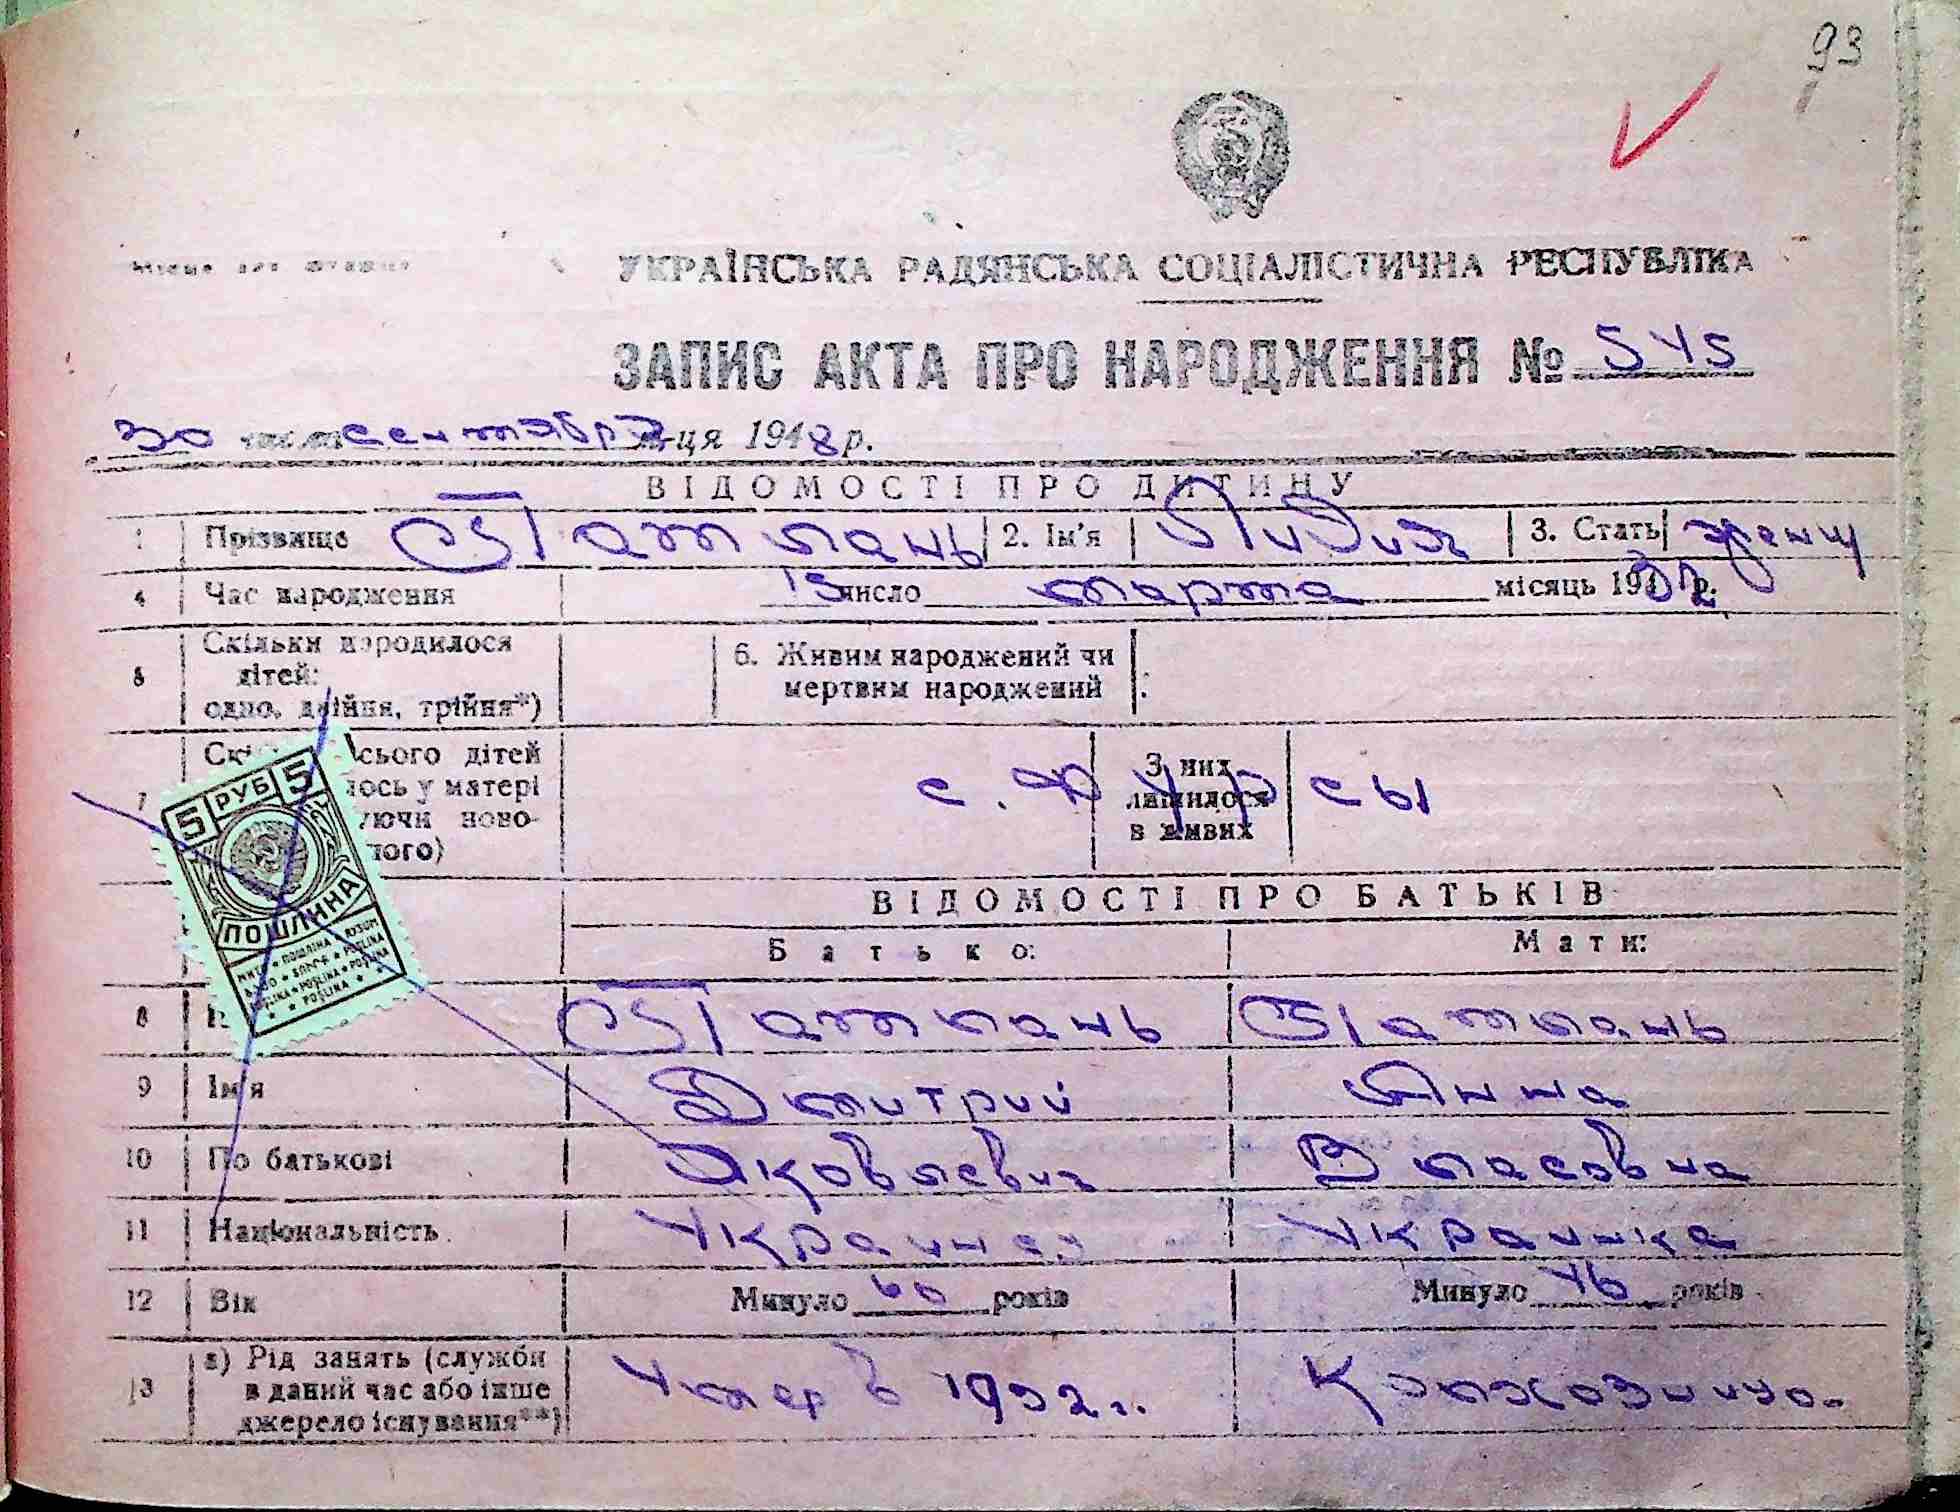 93
УКРАЇНСЬКА РАДЯНСЬКА СОЦІАЛІСТИЧНА РЕСПУБЛІКА
ЗАПИС АКТА ПРО НАРОДЖЕННЯ № 545
30 сентября м-ця 1948 р.
ВІДОМОСТІ ПРО ДИТИНУ
1 Прізвище Статлань 2. Ім'я Лидия 3. Стать женщ
4 Час народження 15 число марта місяць 1932 р.
5 Скільки народилося дітей: 6. Живим народжений чи
одно, двійня, трійня*) мертвим народжений
7 всього дітей З них
у матері с. Фурсы лишилося
ново- в живих
5 РУБ 5
ПОШЛИНА
ВІДОМОСТІ ПРО БАТЬКІВ
Батько: Мати:
8 Статлань Статлань
9 Ім'я Дмитрий Анна
10 По батькові Яковлевич Власовна
11 Національність Украинец Украинка
12 Вік Минуло 60 років Минуло 46 років
13 а) Рід занять (служби
в даний час або інше Умер в 1932 г. Колхозница
джерело існування**)